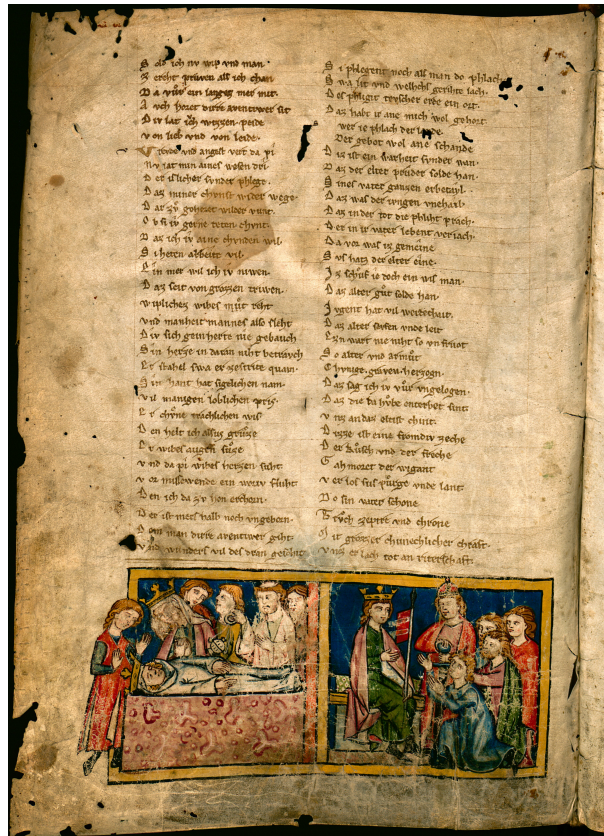 Sold ich nv wip vnd man
Zereht prüven als ich chan
Da vür ein langez mer mit
Nv hoeret dirre aventiwer sit
Div lat ich wizzen peide
von lieb vnd von leide
frevde vnd angest vert da pi
Nv lat min aines wesen dri
Der islicher sunder phlege
Daz miner chvnst wider wege
Dar zv gehoret wilder vunt
Ob si iv gerne teten chunt
Daz ich iv aine chvnden wil
Si heten arbeit vil
Ein mer wil ich iv niwen
Daz seit von grozzen triwen
wipliches wibes mut reht
vnd manheit mannes also sleht
Div sich gein herte nie gebauch
Sin herze in daran niht betrauch
Er stahel swa er ze strite quam
Sin hant hat sigelichen nam
vil manigen loblichen pris
Er chvne trachlichen wis
Den helt ich alsus gruze
Er wibes augen suze
vnd da pi wibes herzen suht
vor missewende ein wariv fluht
Den ich da zv han erchorn
Der ist mers halb noch vngeborn
Dem man dirre aventiwer giht
vnd wunders vil des dran geschiht
Si phlegent noch als man do phlach
Swa lit vnd welhehs gerihte lach
Des phligit tevscher erde ein ort
Daz habt ir ane mich wol gehort
wer ie phlach der lande
Der gebot wol ane schande
Diz ist ein warheit sunder wan
Daz der elter pruder solde han
Sines vater ganzen erbetayl
Daz was der ivngen vnehail
Daz in der tot die phliht prach
Der in ir vater lebent veriach
Da vor was iz gemeine
Svs hatz der elter eine
Iz schuf ie doch ein wis man
Daz alter gut solde han
Jvgent hat vil werdechait
Daz alter sufen vnde leit
Ezn wart nie niht so vnfruot
So alter vnd armut
Chvnige graven herzogn
Daz sag ich iv vür vngelogen
Daz die da hvbe enterbet sint
vnz an daz eltist chint
Dizze ist eine fromdiv zeche
Der kusch vnd der freche
Gahmoret der wigant
verlos sus purge vnde lant
Do sin vater schone
Trvch zepter vnd chrone
Mit grozzer chunechlicher chraft
vnz er lach tot an riterschaft